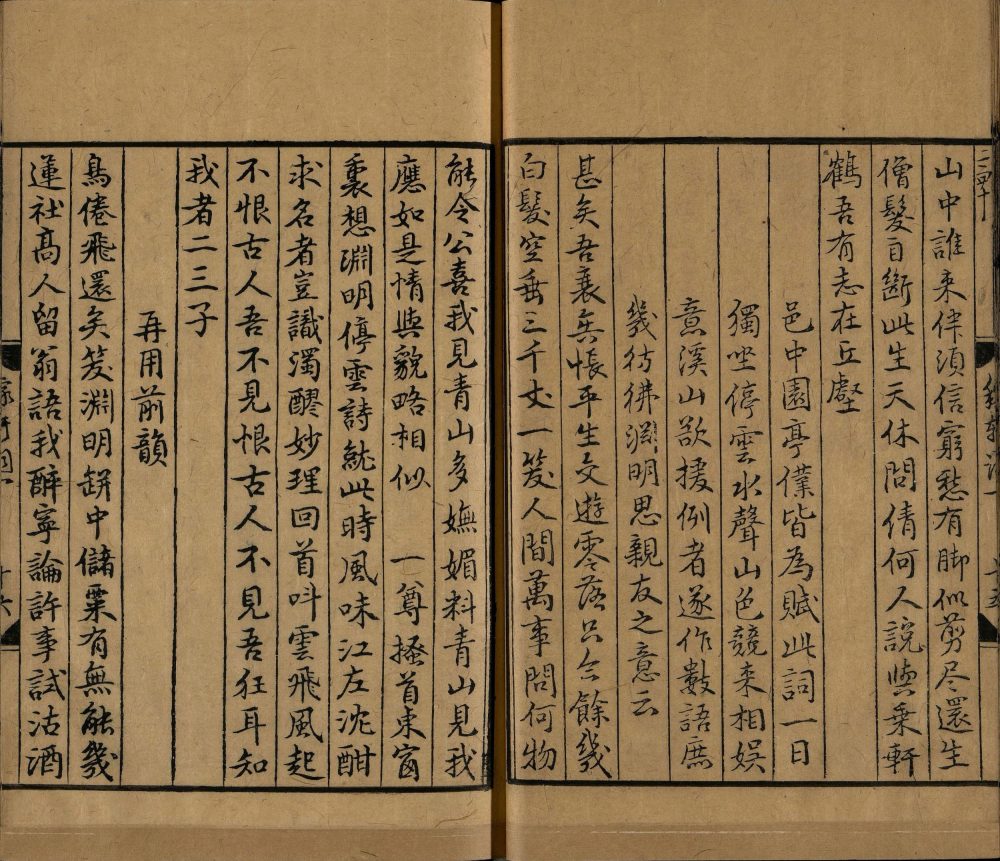 山中誰来伴須信窮愁有脚似剪尽還生
僧髮自斷此生天休問倩何人說與乘軒
鶴吾有志在丘壑
邑中園亭僕皆為賦此詞一日
獨坐停雲水聲山色競来相娛
意溪山欲援例者遂作數語庶
幾彷彿淵明思親友之意云
甚矣吾衰矣悵平生交遊零落只今餘幾
白髮空垂三千丈一笑人間萬事問何物
能令公喜我見青山多嫵媚料青山見我
應如是情與貌略相似　一尊搔首東窗
裏想淵明停雲詩就此時風味江左沈酣
求名者豈識濁醪妙理回首叫雲飛風起
不恨古人吾不見恨古人不見吾狂耳知
我者二三子
再用前韻
鳥倦飛還矣笑淵明缾中儲粟有無能幾
蓮社高人留翁語我醉寧論許事試沽酒
十六